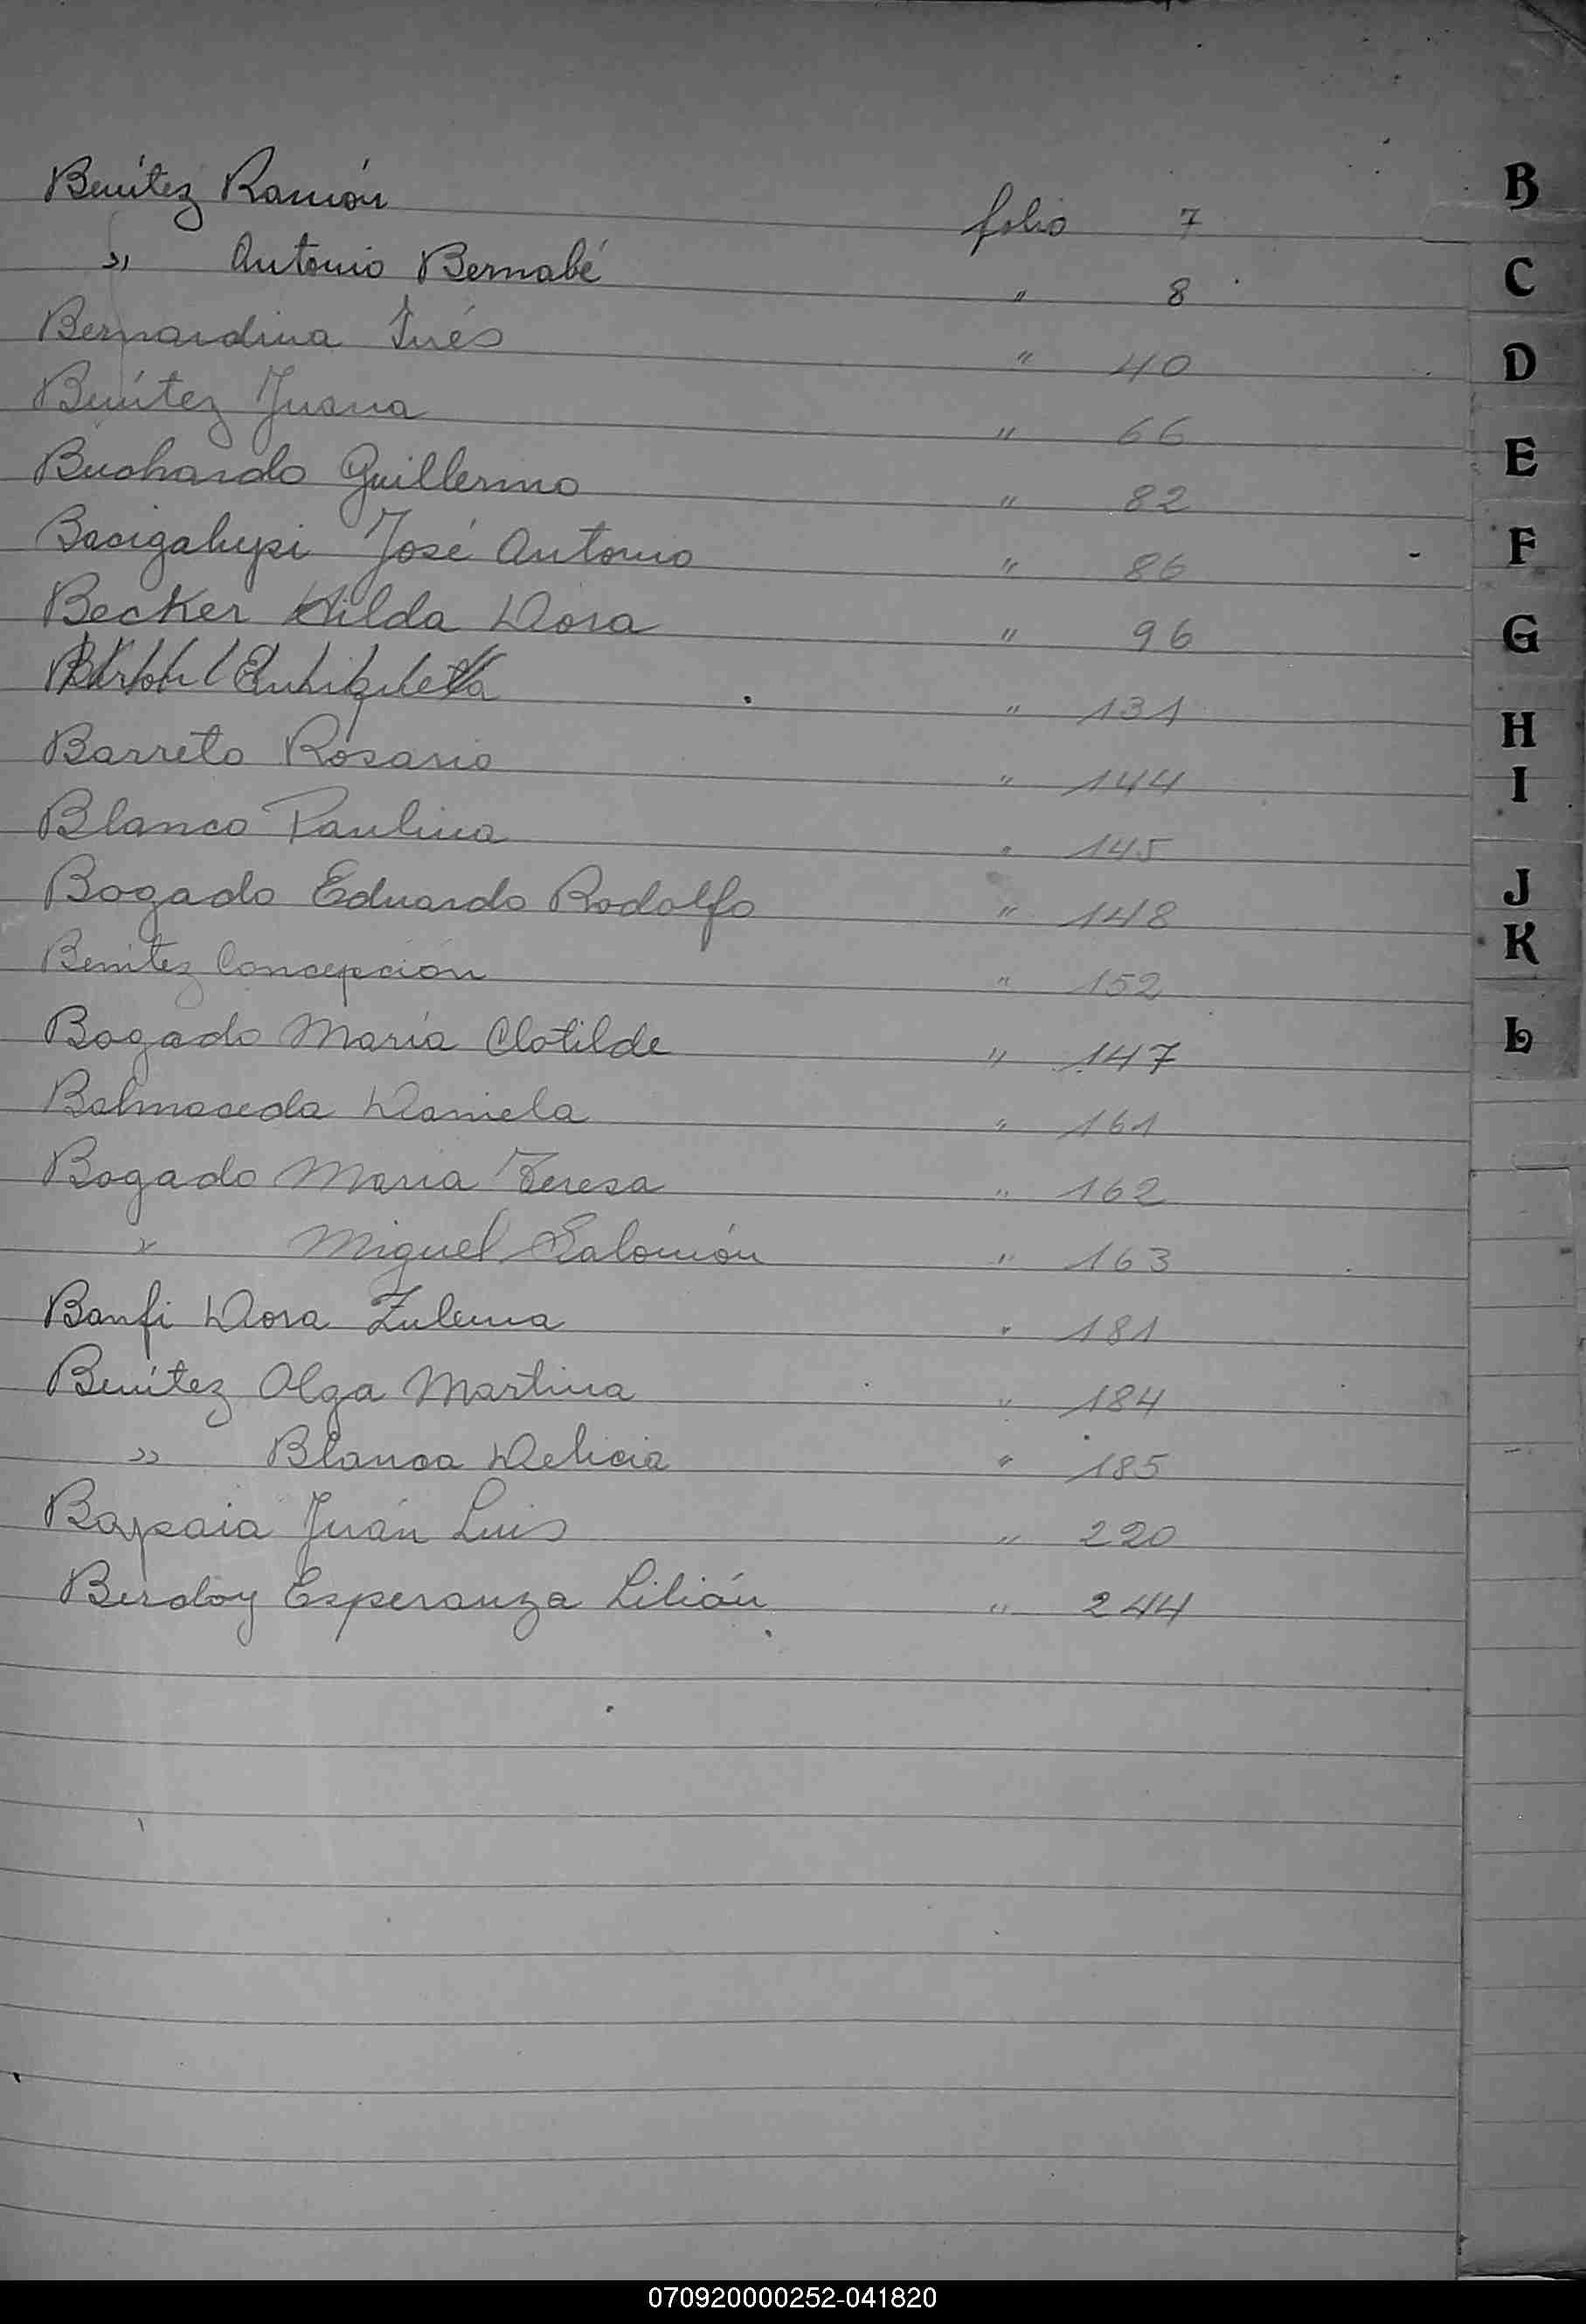 Benítez Ramón folio 7
" Antonio Bernabé " 8
Bernardina Inés " 40
Benítez Juana " 66
Buchardo Guillermo " 82
Bacigalupi José Antonio " 86
Becker Hilda Dora " 96
Enriqueta " 131
Barreto Rosario " 144
Blanco Paulina " 145
Bogado Eduardo Rodolfo " 148
Benitez Concepción " 152
Bogado María Clotilde " 147
Balmaceda Daniela " 161
Bogado Maria Teresa " 162
" Miguel Salomón " 163
Banfi Dora Zulema " 181
Benítez Olga Martina " 184
" Blanca Delicia " 185
Juan Luis " 220
Berdoy Esperanza Lilián " 244
B
C
D
E
F
G
H
I
J
K
L
070920000252-041820